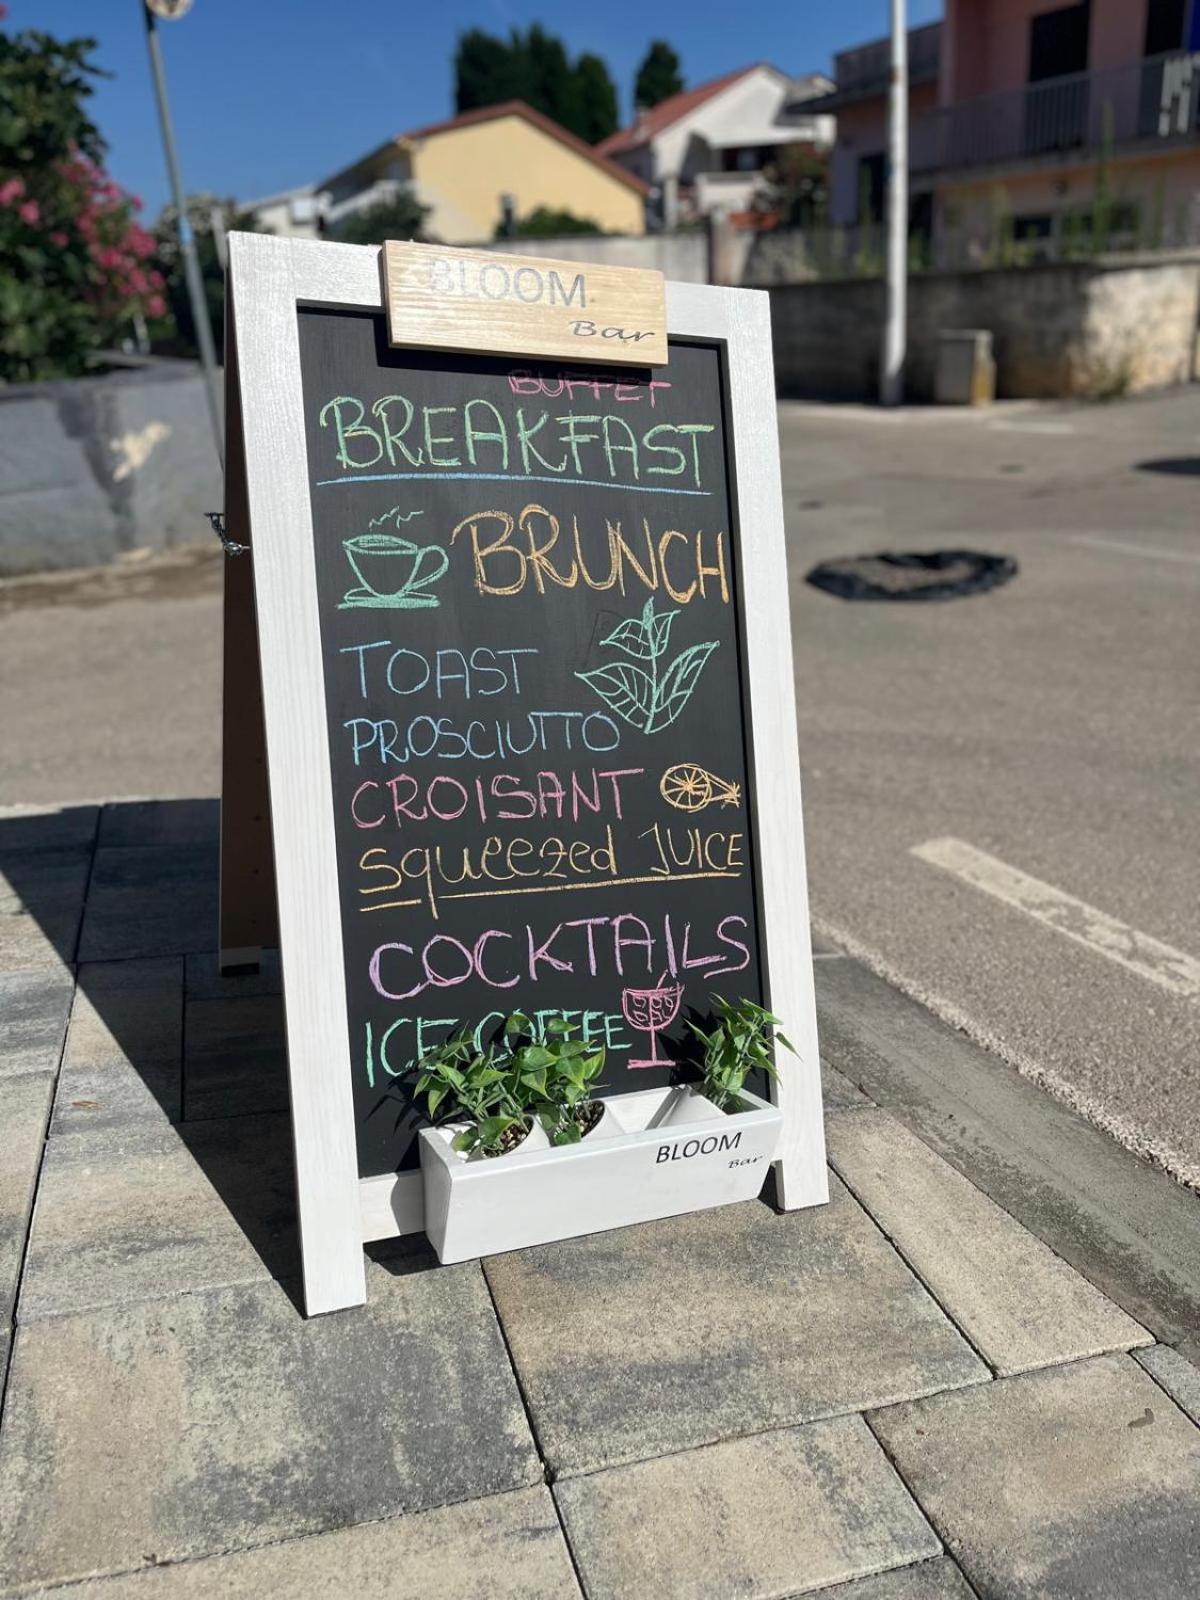 BLOOM
Bar
BUFFET
BREAKFAST
BRUNCH
TOAST
PROSCIUTTO
CROISANT
squeezed JUICE
COCKTAILS
ICE COFFEE
BLOOM
Bar